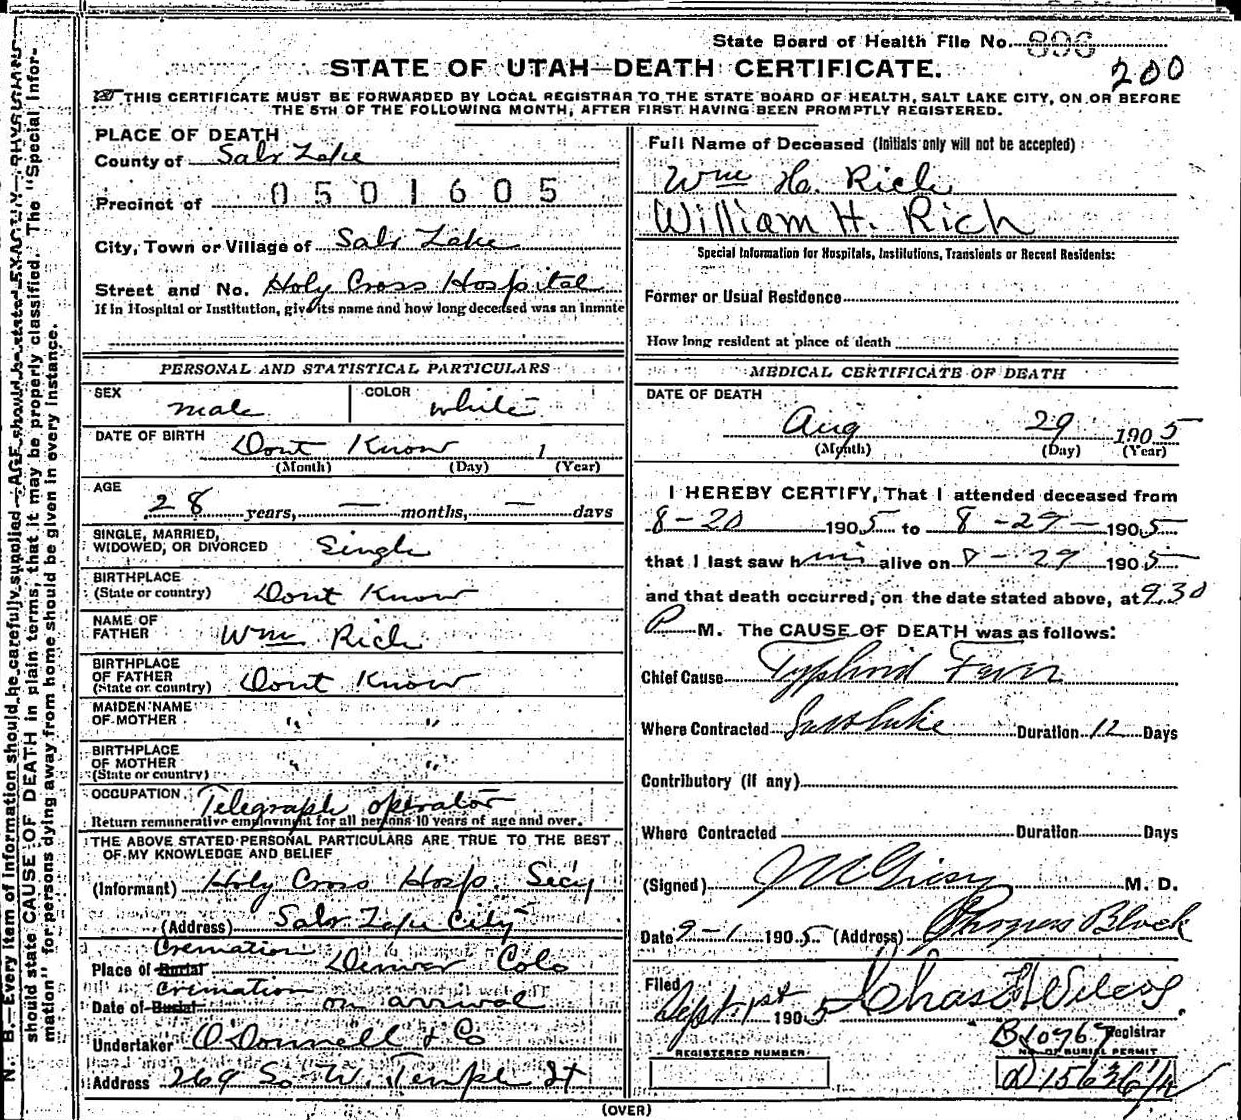 State Board of Health File No. 896
200
STATE OF UTAH—DEATH CERTIFICATE.
THIS CERTIFICATE MUST BE FORWARDED BY LOCAL REGISTRAR TO THE STATE BOARD OF HEALTH, SALT LAKE CITY, ON OR BEFORE
THE 5TH OF THE FOLLOWING MONTH, AFTER FIRST HAVING BEEN PROMPTLY REGISTERED.
N. B.—Every item of information should be carefully supplied. AGE should be stated EXACTLY. PHYSICIANS
should state CAUSE OF DEATH in plain terms, that it may be properly classified. The "Special Infor-
mation" for persons dying away from home should be given in every instance.
PLACE OF DEATH
County of Salt Lake
Precinct of 0501605
City, Town or Village of Salt Lake
Street and No. Holy Cross Hospital
If in Hospital or Institution, give its name and how long deceased was an inmate
PERSONAL AND STATISTICAL PARTICULARS
SEX male COLOR white
DATE OF BIRTH Dont Know 1
(Month) (Day) (Year)
AGE 28 years, — months, — days
SINGLE, MARRIED,
WIDOWED, OR DIVORCED Single
BIRTHPLACE
(State or country) Dont Know
NAME OF
FATHER Wm Rich
BIRTHPLACE
OF FATHER
(State or country) Dont Know
MAIDEN NAME
OF MOTHER " "
BIRTHPLACE
OF MOTHER
(State or country) " "
OCCUPATION Telegraph operator
Return remunerative employment for all persons 10 years of age and over.
THE ABOVE STATED PERSONAL PARTICULARS ARE TRUE TO THE BEST
OF MY KNOWLEDGE AND BELIEF
(Informant) Holy Cross Hosp. Secy
(Address) Salt Lake City
Cremation
Place of Burial Denver Colo
Cremation
Date of Burial on arrival
Undertaker O'Donnell & Co
Address 269 So. W. Temple St
Full Name of Deceased (Initials only will not be accepted)
Wm H. Rich
William H. Rich
Special Information for Hospitals, Institutions, Transients or Recent Residents:
Former or Usual Residence
How long resident at place of death
MEDICAL CERTIFICATE OF DEATH
DATE OF DEATH
Aug 29 1905
(Month) (Day) (Year)
I HEREBY CERTIFY, That I attended deceased from
8-20 1905 to 8-29- 1905
that I last saw him alive on 8-29 1905
and that death occurred, on the date stated above, at 9.30
P M. The CAUSE OF DEATH was as follows:
Chief Cause Typhoid Fever
Where Contracted Duration 12 Days
Contributory (if any)
Where Contracted Duration Days
(Signed) M. D.
Date 9-1 1905 (Address) Block
Filed Sept 1st 1905 Chas Wilcox
Registrar
REGISTERED NUMBER
NO. OF BURIAL PERMIT
(OVER)